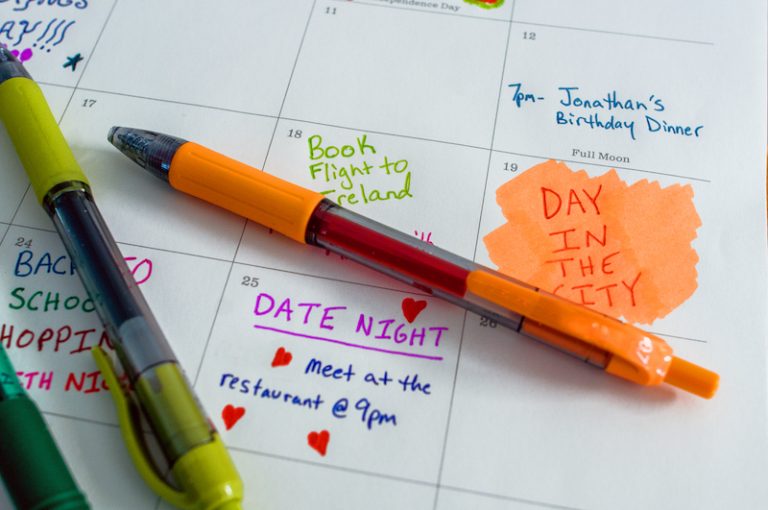 AY!!!
Independence Day
11
12
7pm- Jonathan's
Birthday Dinner
17
18
Book
Flight to
Ireland
Full Moon
19
DAY
IN
THE
CITY
24
BACK TO
SCHOO
HOPPIN
ITH NI
25
DATE NIGHT
Meet at the
restaurant @ 9pm
26